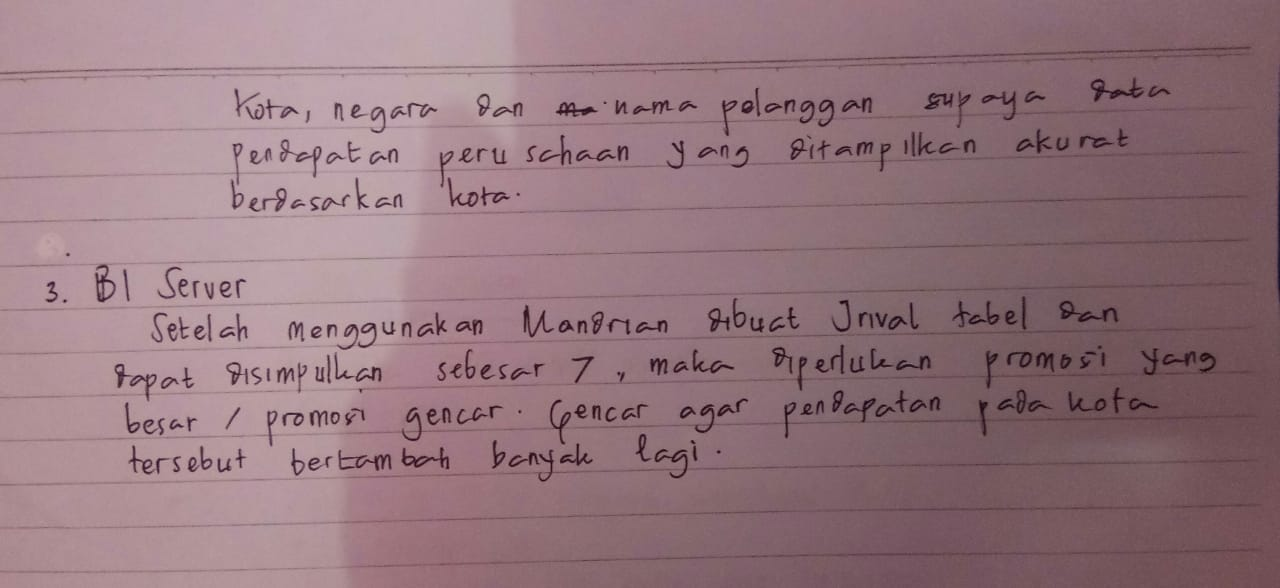 Kota, negara dan nama pelanggan supaya data
pendapatan peruschaan yang ditampilkan akurat
berdasarkan kota.
3. BI Server
Setelah menggunakan Mandrian dibuat Jrival tabel dan
dapat disimpulkan sebesar 7, maka diperlukan promosi yang
besar / promosi gencar. Gencar agar pendapatan pada kota
tersebut bertambah banyak lagi.